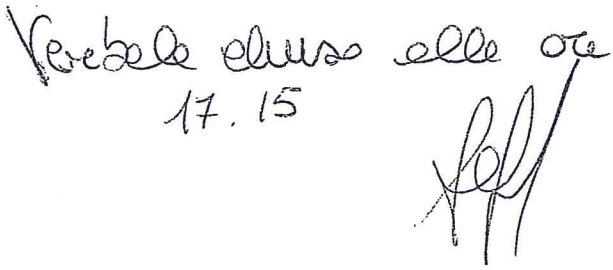 Verbale chiuso alle ore
17.15